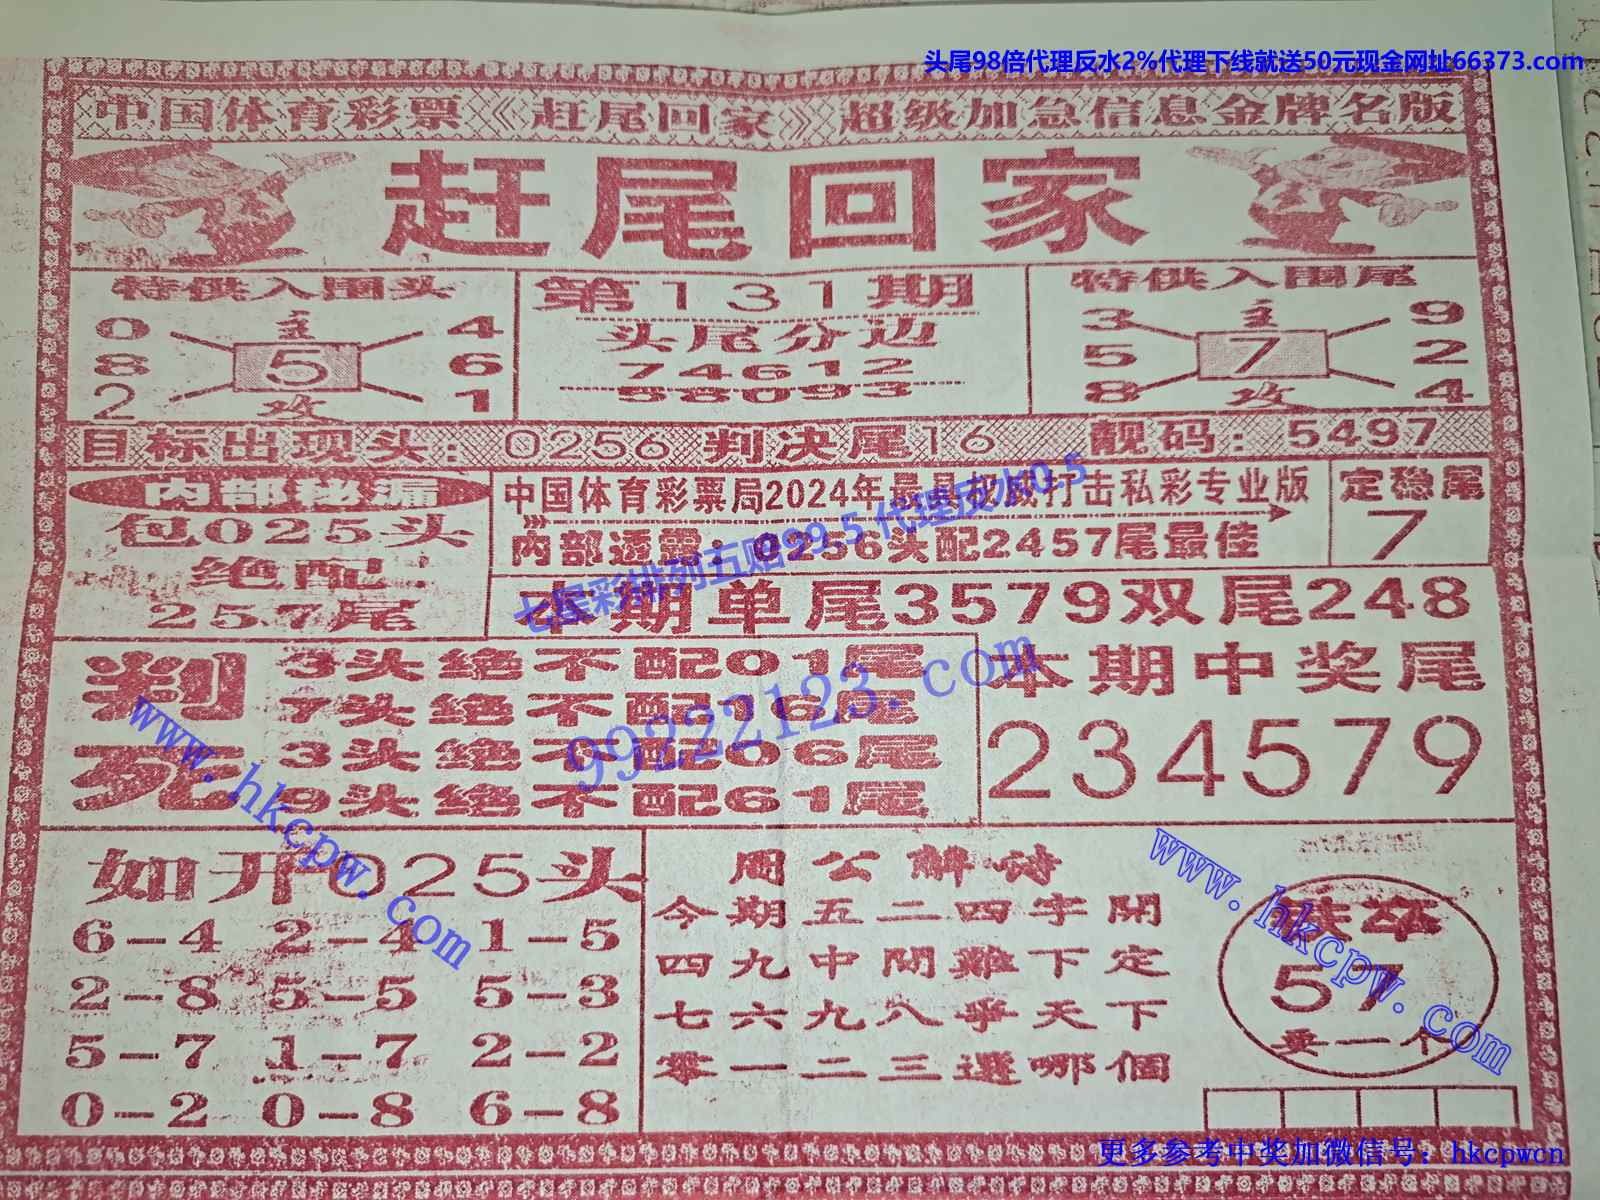 头尾98倍代理反水2%代理下线就送50元现金网址66373.com
中国体育彩票《赶尾回家》超级加急信息金牌名版
赶尾回家
特供入围头
0 主 4
8 5 6
2 攻 1
第131期
头尾分边
74612
58093
特供入围尾
3 主 9
5 7 2
8 攻 4
目标出现头：0256 判决尾16 靓码：5497
内部秘漏
包025头
绝配
257尾
中国体育彩票局2024年最具权威打击私彩专业版
内部透露：0256头配2457尾最佳
定稳尾
7
七星彩排列五赔99.5代理反水0.5
本期单尾3579双尾248
判死
3头绝不配01尾
7头绝不配16尾
3头绝不配06尾
9头绝不配61尾
99222123.com
本期中奖尾
234579
www.hkcpw.com
如开025头
6-4 2-4 1-5
2-8 5-5 5-3
5-7 1-7 2-2
0-2 0-8 6-8
周公解诗
今期五二四字開
四九中間難下定
七六九八爭天下
零一二三選哪個
57
要一个
www.hkcpw.com
更多参考中奖加微信号：hkcpwcn